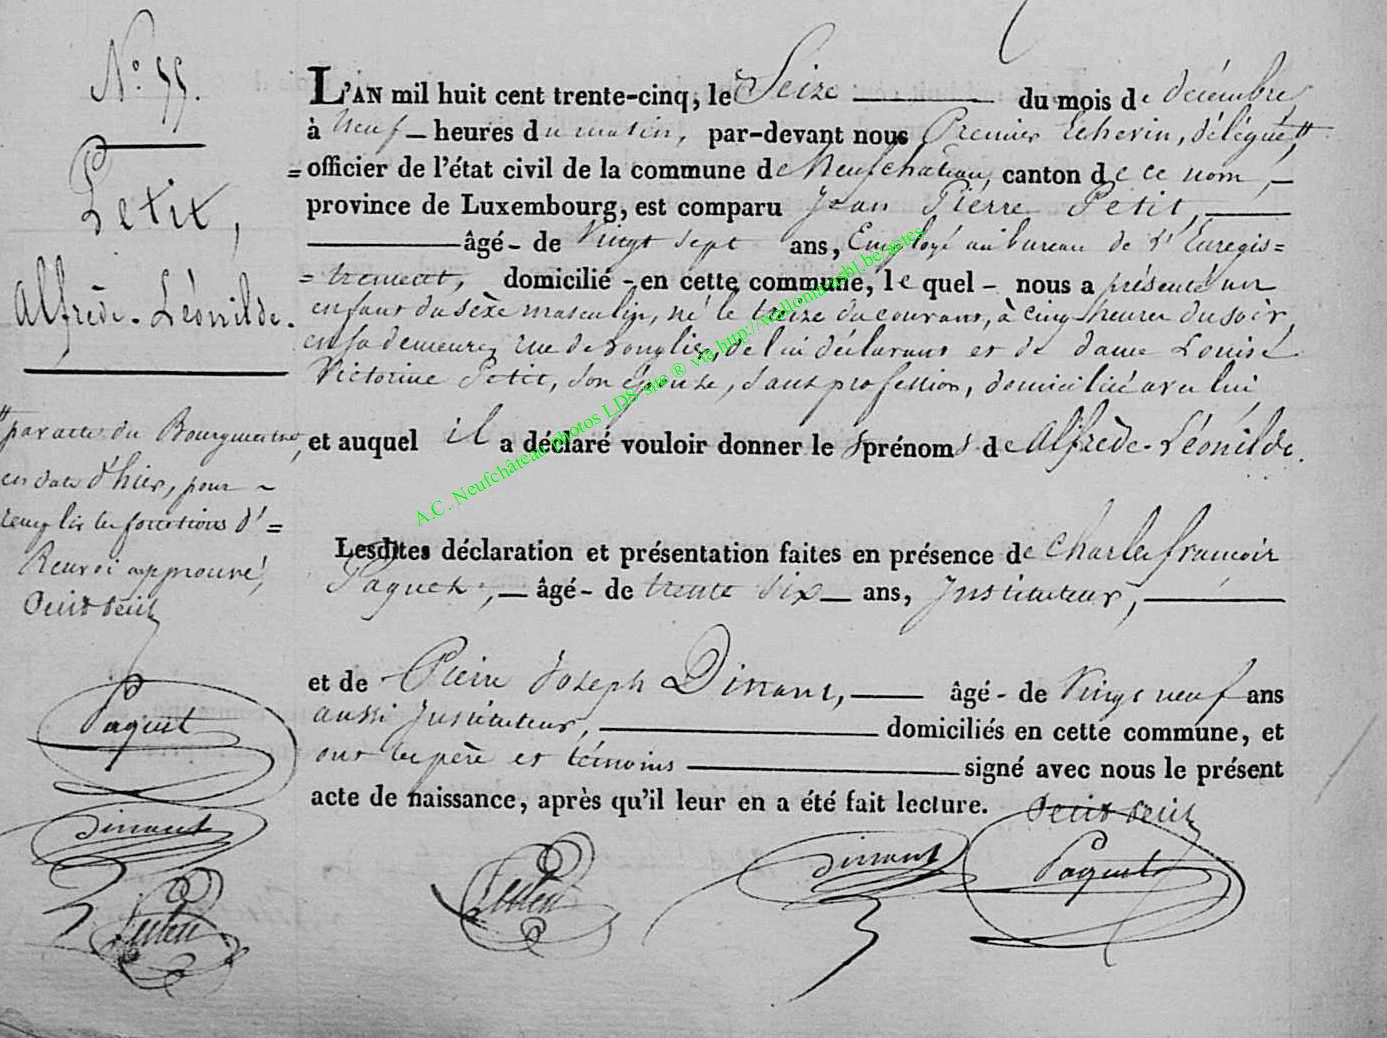 N.° 55.
Petit,
Alfrède-Léonilde.
L'AN mil huit cent trente-cinq, le Seize du mois de décembre,
à neuf heures du matin, par-devant nous Premier Echevin, délégué,"
= officier de l'état civil de la commune de Neufchateau, canton de ce nom, –
province de Luxembourg, est comparu Jean Pierre Petit,
âgé - de Vingt sept ans, Employé au bureau de l'Enregis=
= trement, domicilié - en cette commune, lequel - nous a présenté un
enfant du sèxe masculin, né le treize du courant, à cinq heures du soir,
en sa demeure, rue de Longlier, de lui déclarant et de dame Louise
Victorine Petit, son épouse, sans profession, domiciliée avec lui
et auquel il a déclaré vouloir donner les prénoms de Alfrède-Léonilde.
Lesdites déclaration et présentation faites en présence de Charles françois
Paquet, – âgé - de trente six – ans, Instituteur,
et de Pierre Joseph Dinant, âgé - de Vingt neuf ans
aussi Instituteur, domiciliés en cette commune, et
ont les père et témoins signé avec nous le présent
acte de naissance, après qu'il leur en a été fait lecture.
" par acte du Bourgmestre,
en date d'hier, pour
remplir les fonctions d'=
Renvoi approuvé,
Petit
Paquet
Dinant
Petit
Dinant
Paquet
A.C. Neufchâteau photos LDS site ® via http://wallonia.asbl.be/astes